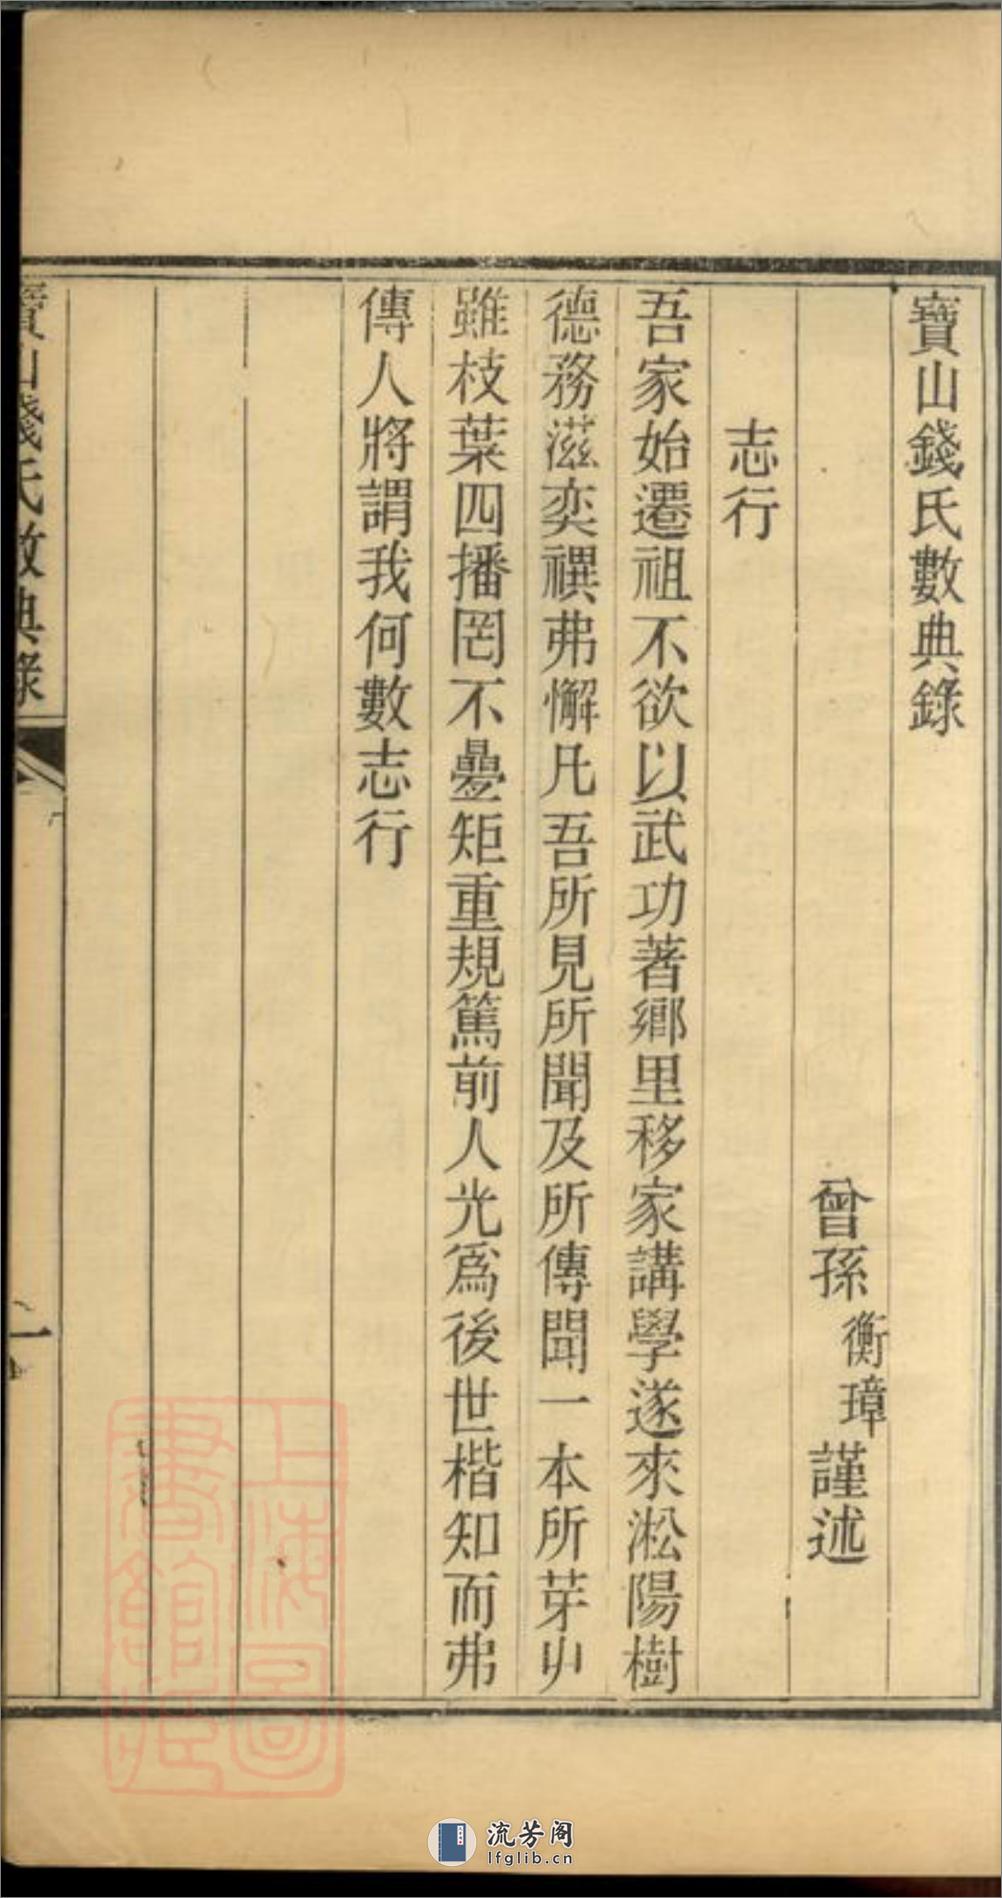 寶山錢氏數典錄
曾孫衡璋謹述
志行
吾家始遷祖不欲以武功著鄉里移家講學遂來淞陽樹
德務滋奕禩弗懈凡吾所見所聞及所傳聞一本所芽丱
雖枝葉四播罔不疊矩重規篤前人光爲後世楷知而弗
傳人將謂我何數志行
寶山錢氏數典錄
一
上海圖
書館藏
流芳阁
lfglib.cn